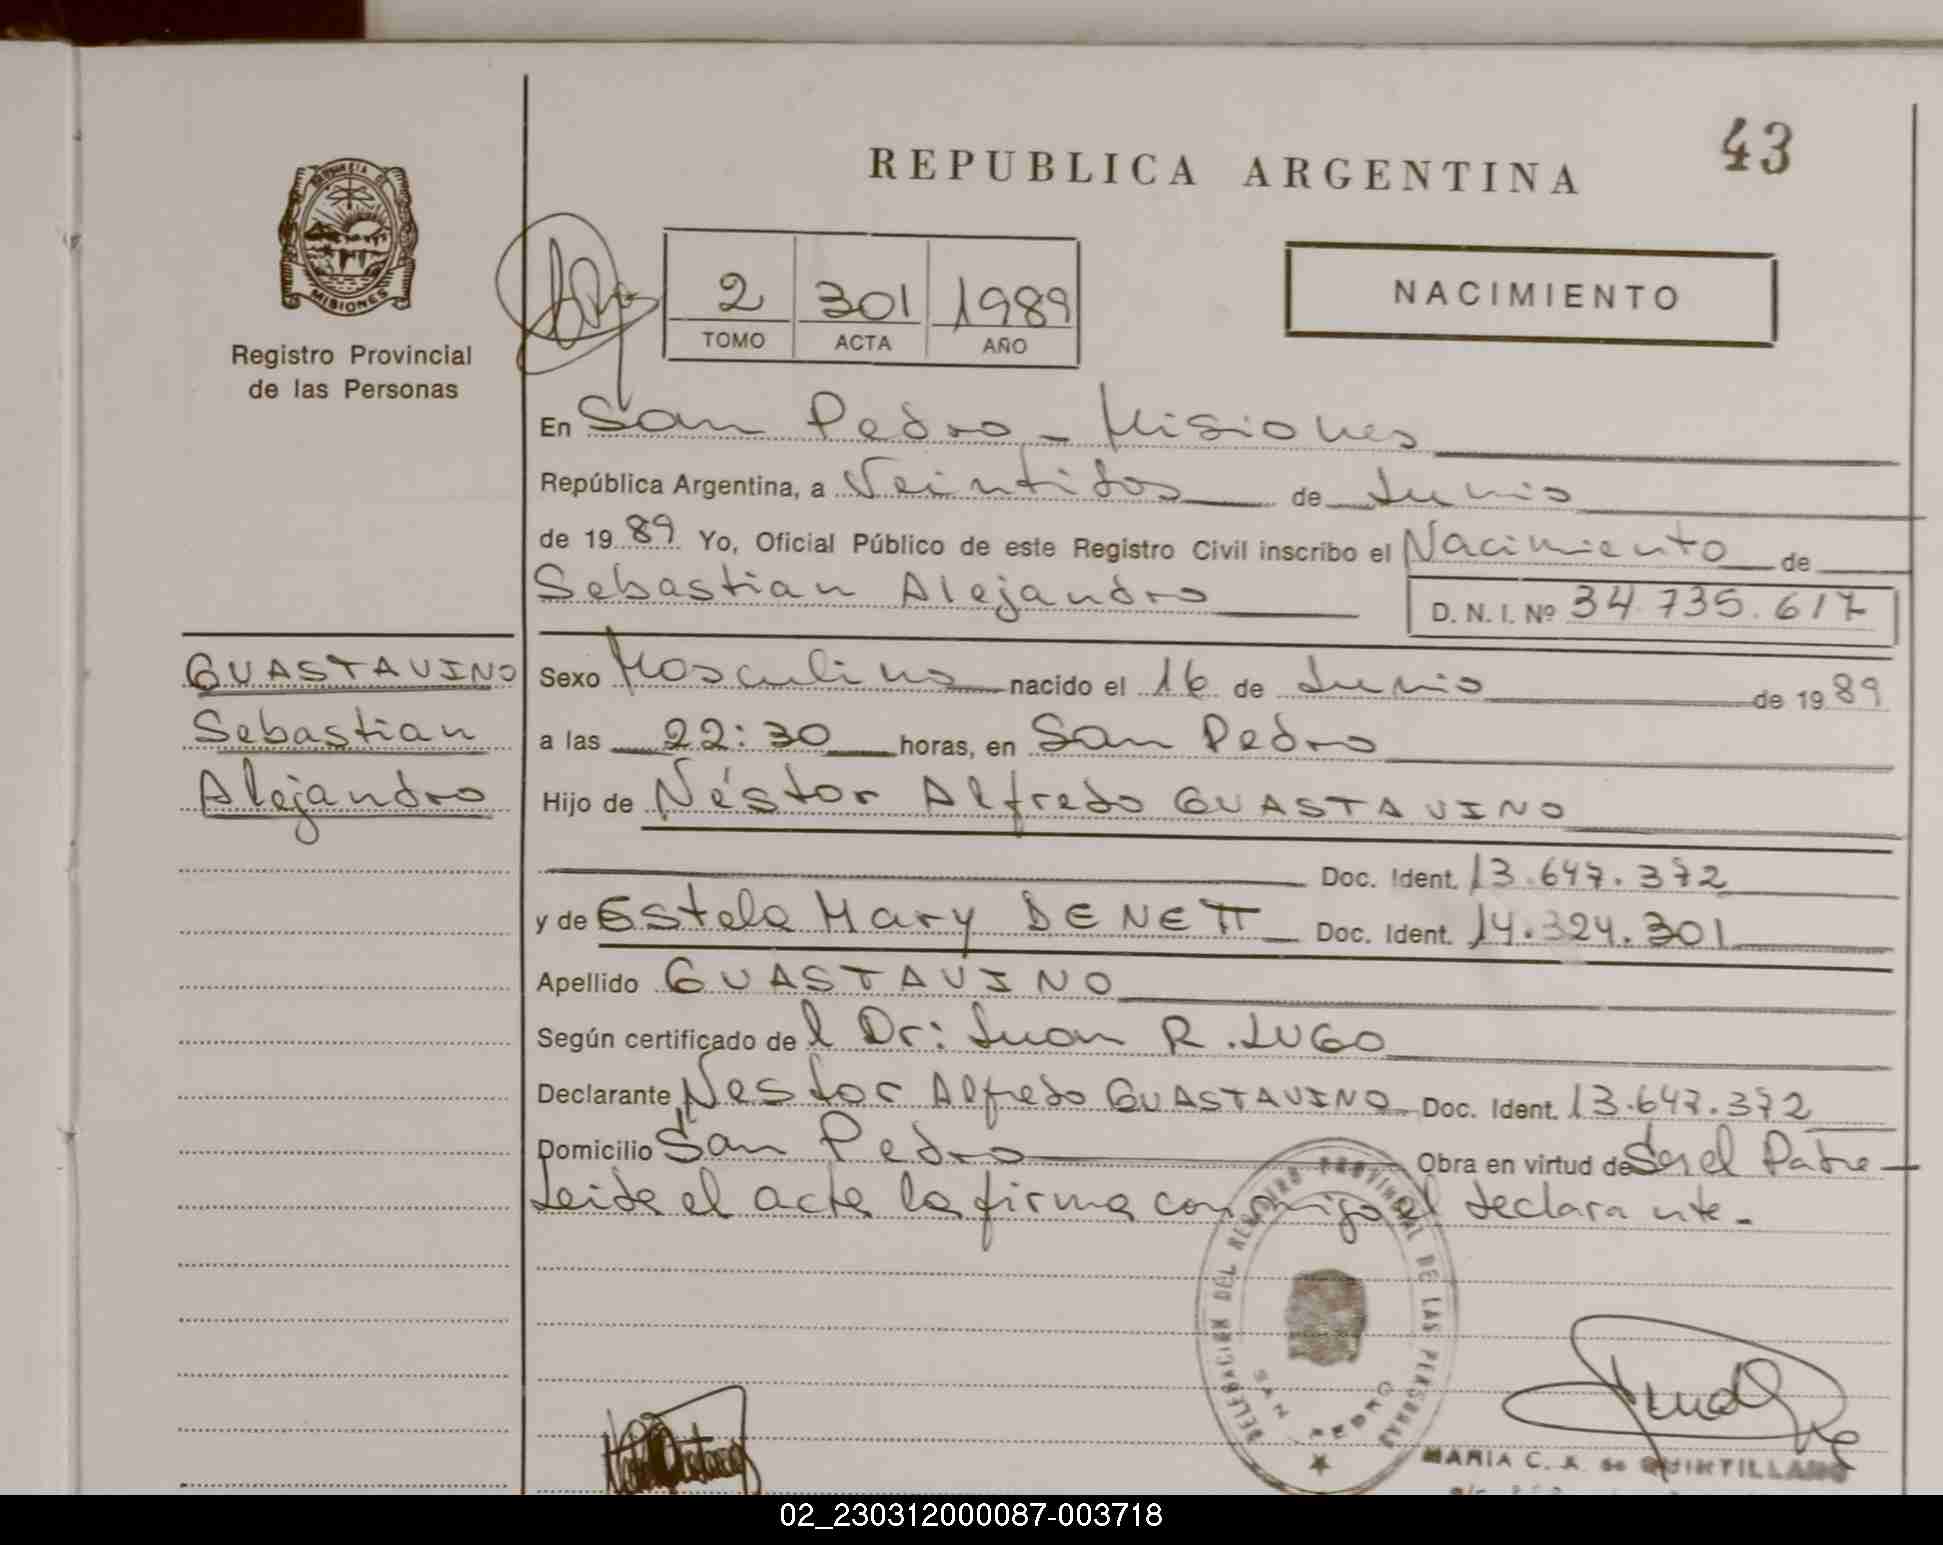 43
REPUBLICA ARGENTINA
PROVINCIA DE
MISIONES
Registro Provincial
de las Personas
2 301 1989
TOMO ACTA AÑO
NACIMIENTO
En San Pedro - Misiones
República Argentina, a Veintidos de Junio
de 1989 Yo, Oficial Público de este Registro Civil inscribo el Nacimiento de
Sebastian Alejandro D. N. I. Nº 34.735.617
GUASTAVINO
Sebastian
Alejandro
Sexo Masculino nacido el 16 de Junio de 1989
a las 22:30 horas, en San Pedro
Hijo de Néstor Alfredo GUASTAVINO
Doc. Ident. 13.647.372
y de Estela Mary DENETT Doc. Ident. 14.324.301
Apellido GUASTAVINO
Según certificado del Dr: Juan R. LUGO
Declarante Nestor Alfredo GUASTAVINO Doc. Ident. 13.647.372
Domicilio San Pedro Obra en virtud de Ser el Padre
Leida el acta la firma conmigo el declarante.
DELEGACION DEL REGISTRO PROVINCIAL DE LAS PERSONAS
SAN PEDRO
MARIA C. A. de QUINTILLANO
02_230312000087-003718